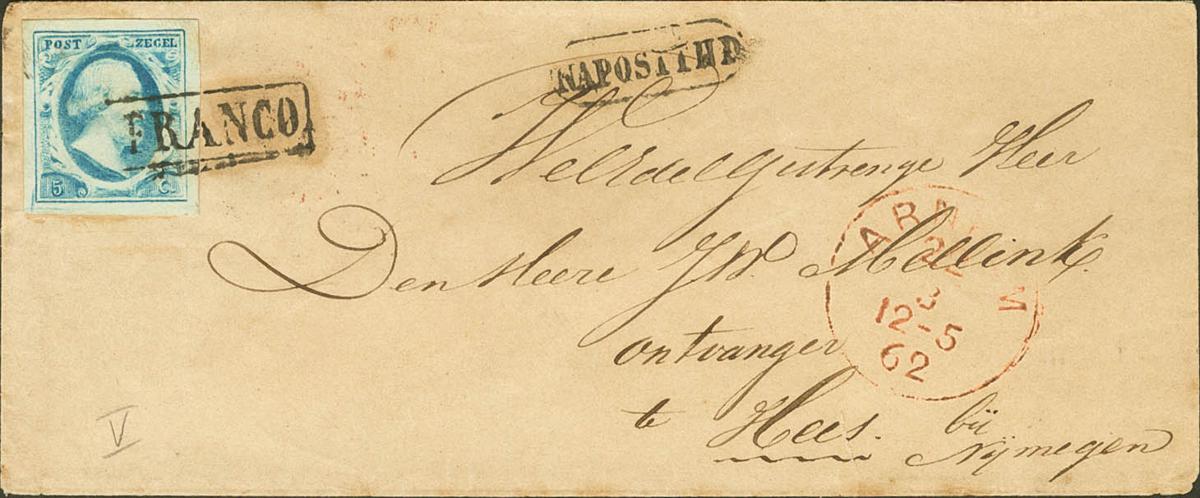 POST ZEGEL
5 C.
FRANCO
NAPOSTTIJD
WelEdelGestrenge Heer
Den Heere J.W. Mellink
ontvanger
te Hees. bij
Nijmegen
ARNHEM
12-5
62
V